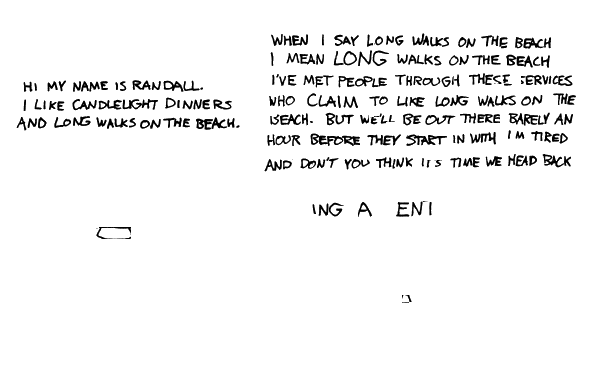 HI MY NAME IS RANDALL.
I LIKE CANDLELIGHT DINNERS
AND LONG WALKS ON THE BEACH.
WHEN I SAY LONG WALKS ON THE BEACH
I MEAN LONG WALKS ON THE BEACH
I'VE MET PEOPLE THROUGH THESE SERVICES
WHO CLAIM TO LIKE LONG WALKS ON THE
BEACH. BUT WE'LL BE OUT THERE BARELY AN
HOUR BEFORE THEY START IN WITH I'M TIRED
AND DON'T YOU THINK IT'S TIME WE HEAD BACK
ING A